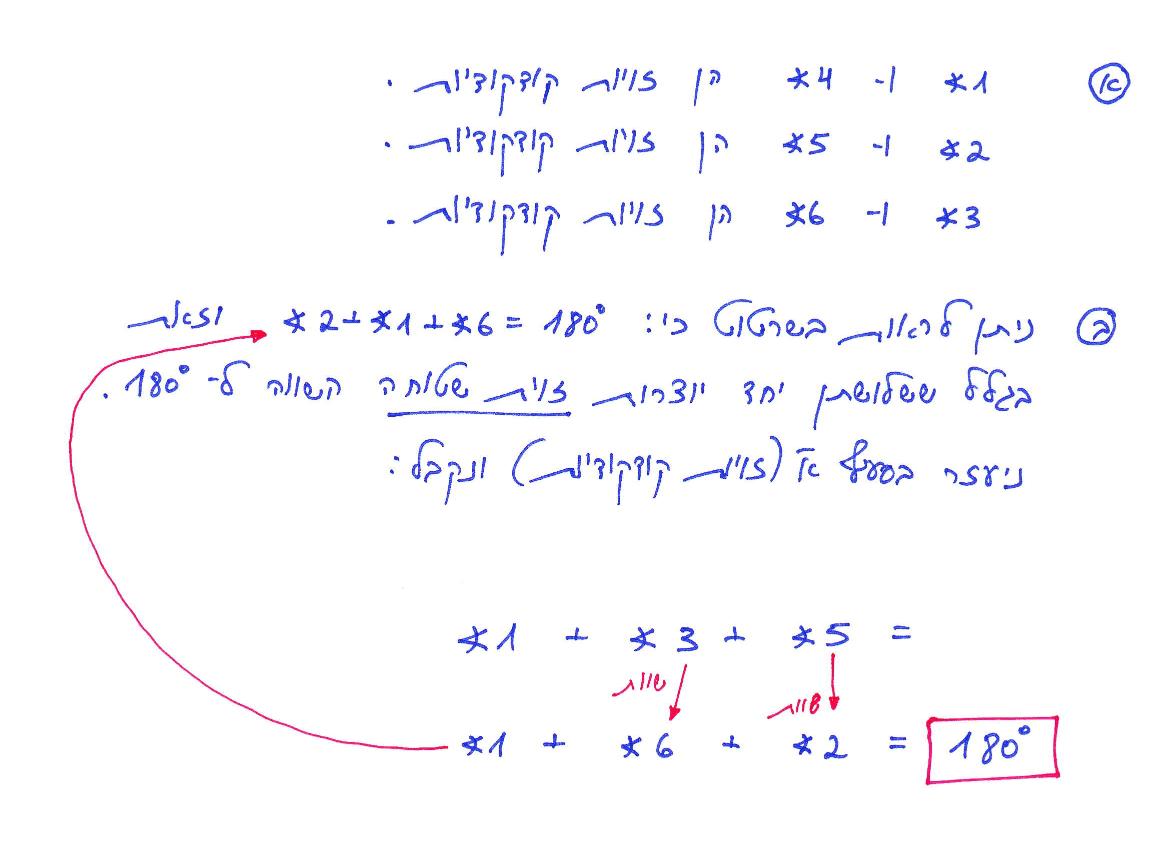 א ∢1 ו- ∢4 הן זויות קודקודיות.
∢2 ו- ∢5 הן זויות קודקודיות.
∢3 ו- ∢6 הן זויות קודקודיות.
ב ניתן לראות בשרטוט כי: ∢2+∢1+∢6=180° וזאת
בגלל ששלושתן יחד יוצרות זוית שטוחה השווה ל-180°.
ניעזר בסעיף א' (זויות קודקודיות) ונקבל:
∢1 + ∢3 + ∢5 =
שוות שוות
∢1 + ∢6 + ∢2 = 180°